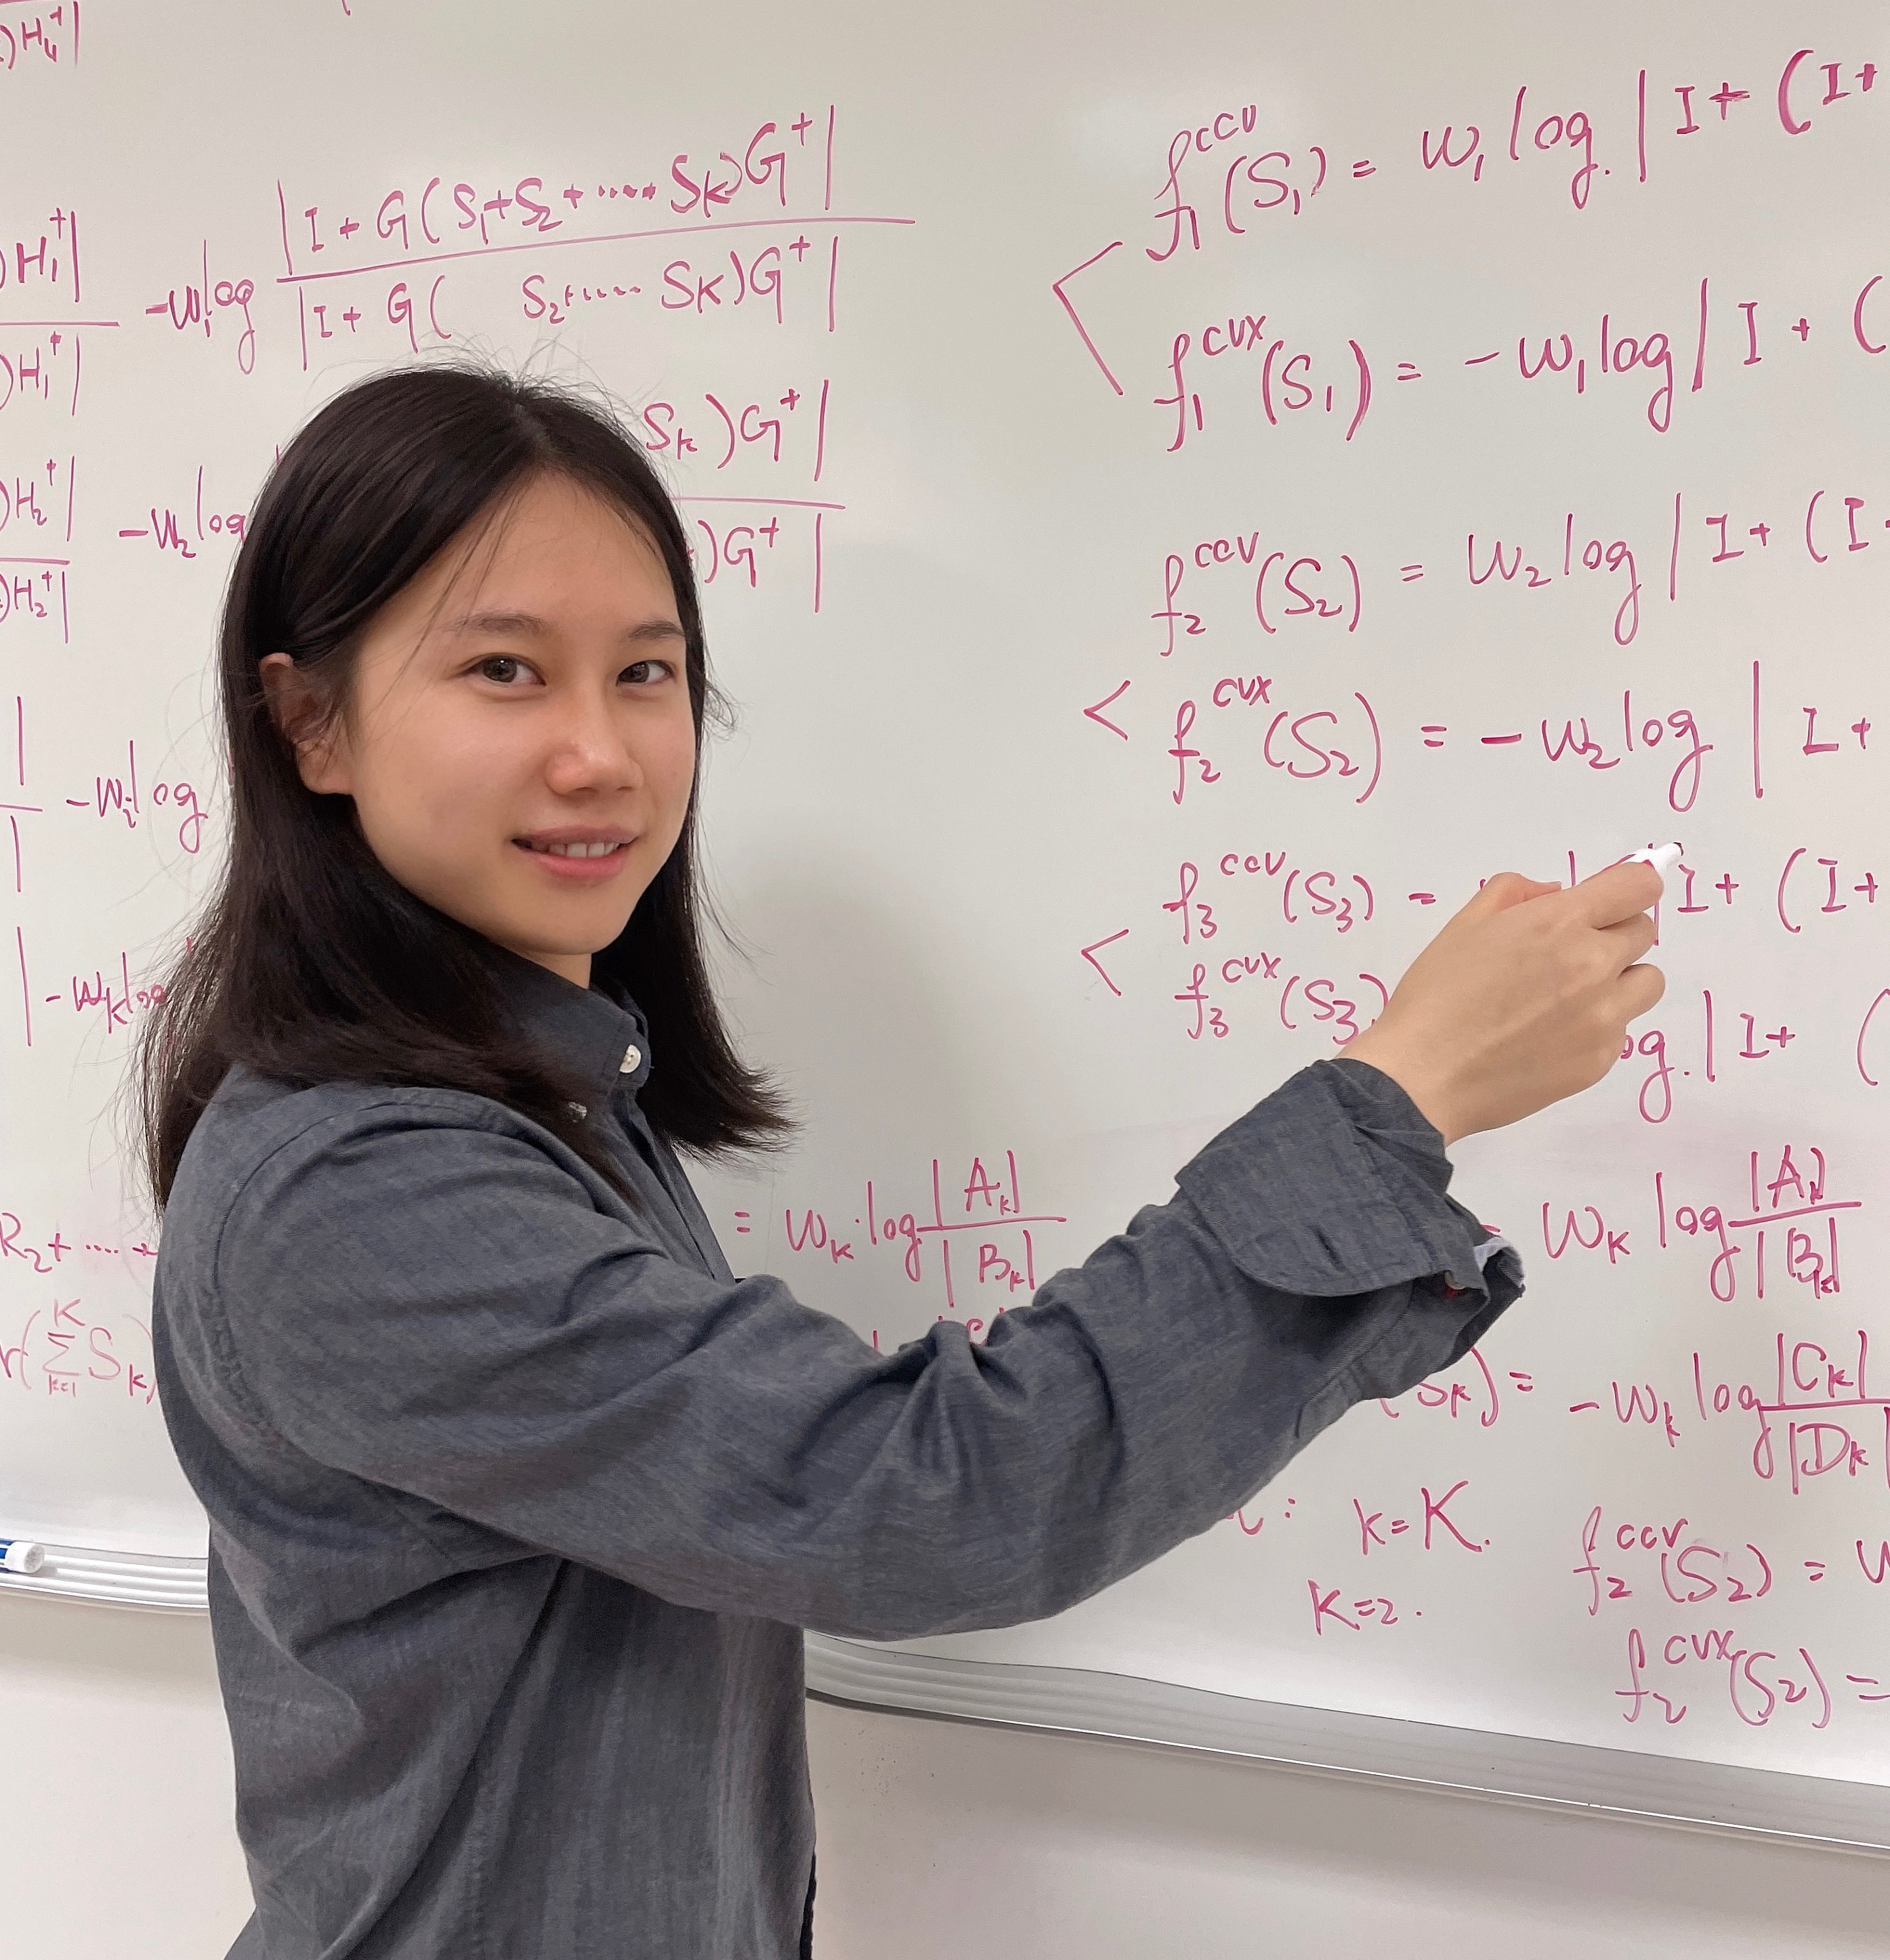 )H₄⁺|
)H₁⁺|
)H₁⁺|
-w₁log |I + G(S₁+S₂+.....SK)G⁺|
|I + G( S₂+..... SK)G⁺|
)H₂⁺|
)H₂⁺|
-w₂log
Sₖ)G⁺|
)G⁺|
| -wᵢlog
|
| -wₖlog
R₂+ .... +
r(∑ₖ₌₁ᴷ Sₖ)
= wₖ.log |Aₖ|
|Bₖ|
f₁ᶜᶜᵛ(S₁) = w₁log.|I+(I+
f₁ᶜᵛˣ(S₁) = -w₁log|I+(
f₂ᶜᶜᵛ(S₂) = w₂log|I+(I+
< f₂ᶜᵛˣ(S₂) = -w₂log|I+
f₃ᶜᶜᵛ(S₃) = |I+(I+
< f₃ᶜᵛˣ(S₃)
og.|I+ (
= wₖ log |Aₖ|
|Bₖ|
(Sₖ) = -wₖ log |Cₖ|
|Dₖ|
: k=K.
K=2.
f₂ᶜᶜᵛ(S₂) = w
f₂ᶜᵛˣ(S₂) =